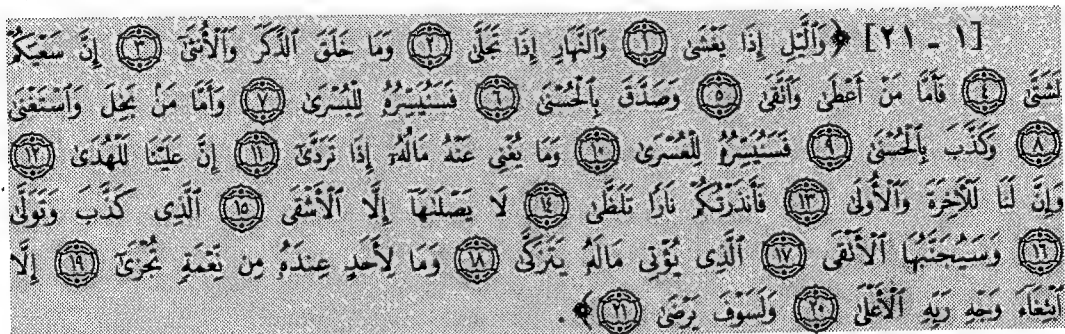 [١ - ٢١] ﴿وَٱلَّيْلِ إِذَا يَغْشَىٰ ۝١ وَٱلنَّهَارِ إِذَا تَجَلَّىٰ ۝٢ وَمَا خَلَقَ ٱلذَّكَرَ وَٱلْأُنثَىٰٓ ۝٣ إِنَّ سَعْيَكُمْ
لَشَتَّىٰ ۝٤ فَأَمَّا مَنْ أَعْطَىٰ وَٱتَّقَىٰ ۝٥ وَصَدَّقَ بِٱلْحُسْنَىٰ ۝٦ فَسَنُيَسِّرُهُۥ لِلْيُسْرَىٰ ۝٧ وَأَمَّا مَنۢ بَخِلَ وَٱسْتَغْنَىٰ
۝٨ وَكَذَّبَ بِٱلْحُسْنَىٰ ۝٩ فَسَنُيَسِّرُهُۥ لِلْعُسْرَىٰ ۝١٠ وَمَا يُغْنِى عَنْهُ مَالُهُۥٓ إِذَا تَرَدَّىٰٓ ۝١١ إِنَّ عَلَيْنَا لَلْهُدَىٰ ۝١٢
وَإِنَّ لَنَا لَلْءَاخِرَةَ وَٱلْأُولَىٰ ۝١٣ فَأَنذَرْتُكُمْ نَارًا تَلَظَّىٰ ۝١٤ لَا يَصْلَىٰهَآ إِلَّا ٱلْأَشْقَى ۝١٥ ٱلَّذِى كَذَّبَ وَتَوَلَّىٰ
۝١٦ وَسَيُجَنَّبُهَا ٱلْأَتْقَى ۝١٧ ٱلَّذِى يُؤْتِى مَالَهُۥ يَتَزَكَّىٰ ۝١٨ وَمَا لِأَحَدٍ عِندَهُۥ مِن نِّعْمَةٍ تُجْزَىٰٓ ۝١٩ إِلَّا
ٱبْتِغَآءَ وَجْهِ رَبِّهِ ٱلْأَعْلَىٰ ۝٢٠ وَلَسَوْفَ يَرْضَىٰ ۝٢١﴾.